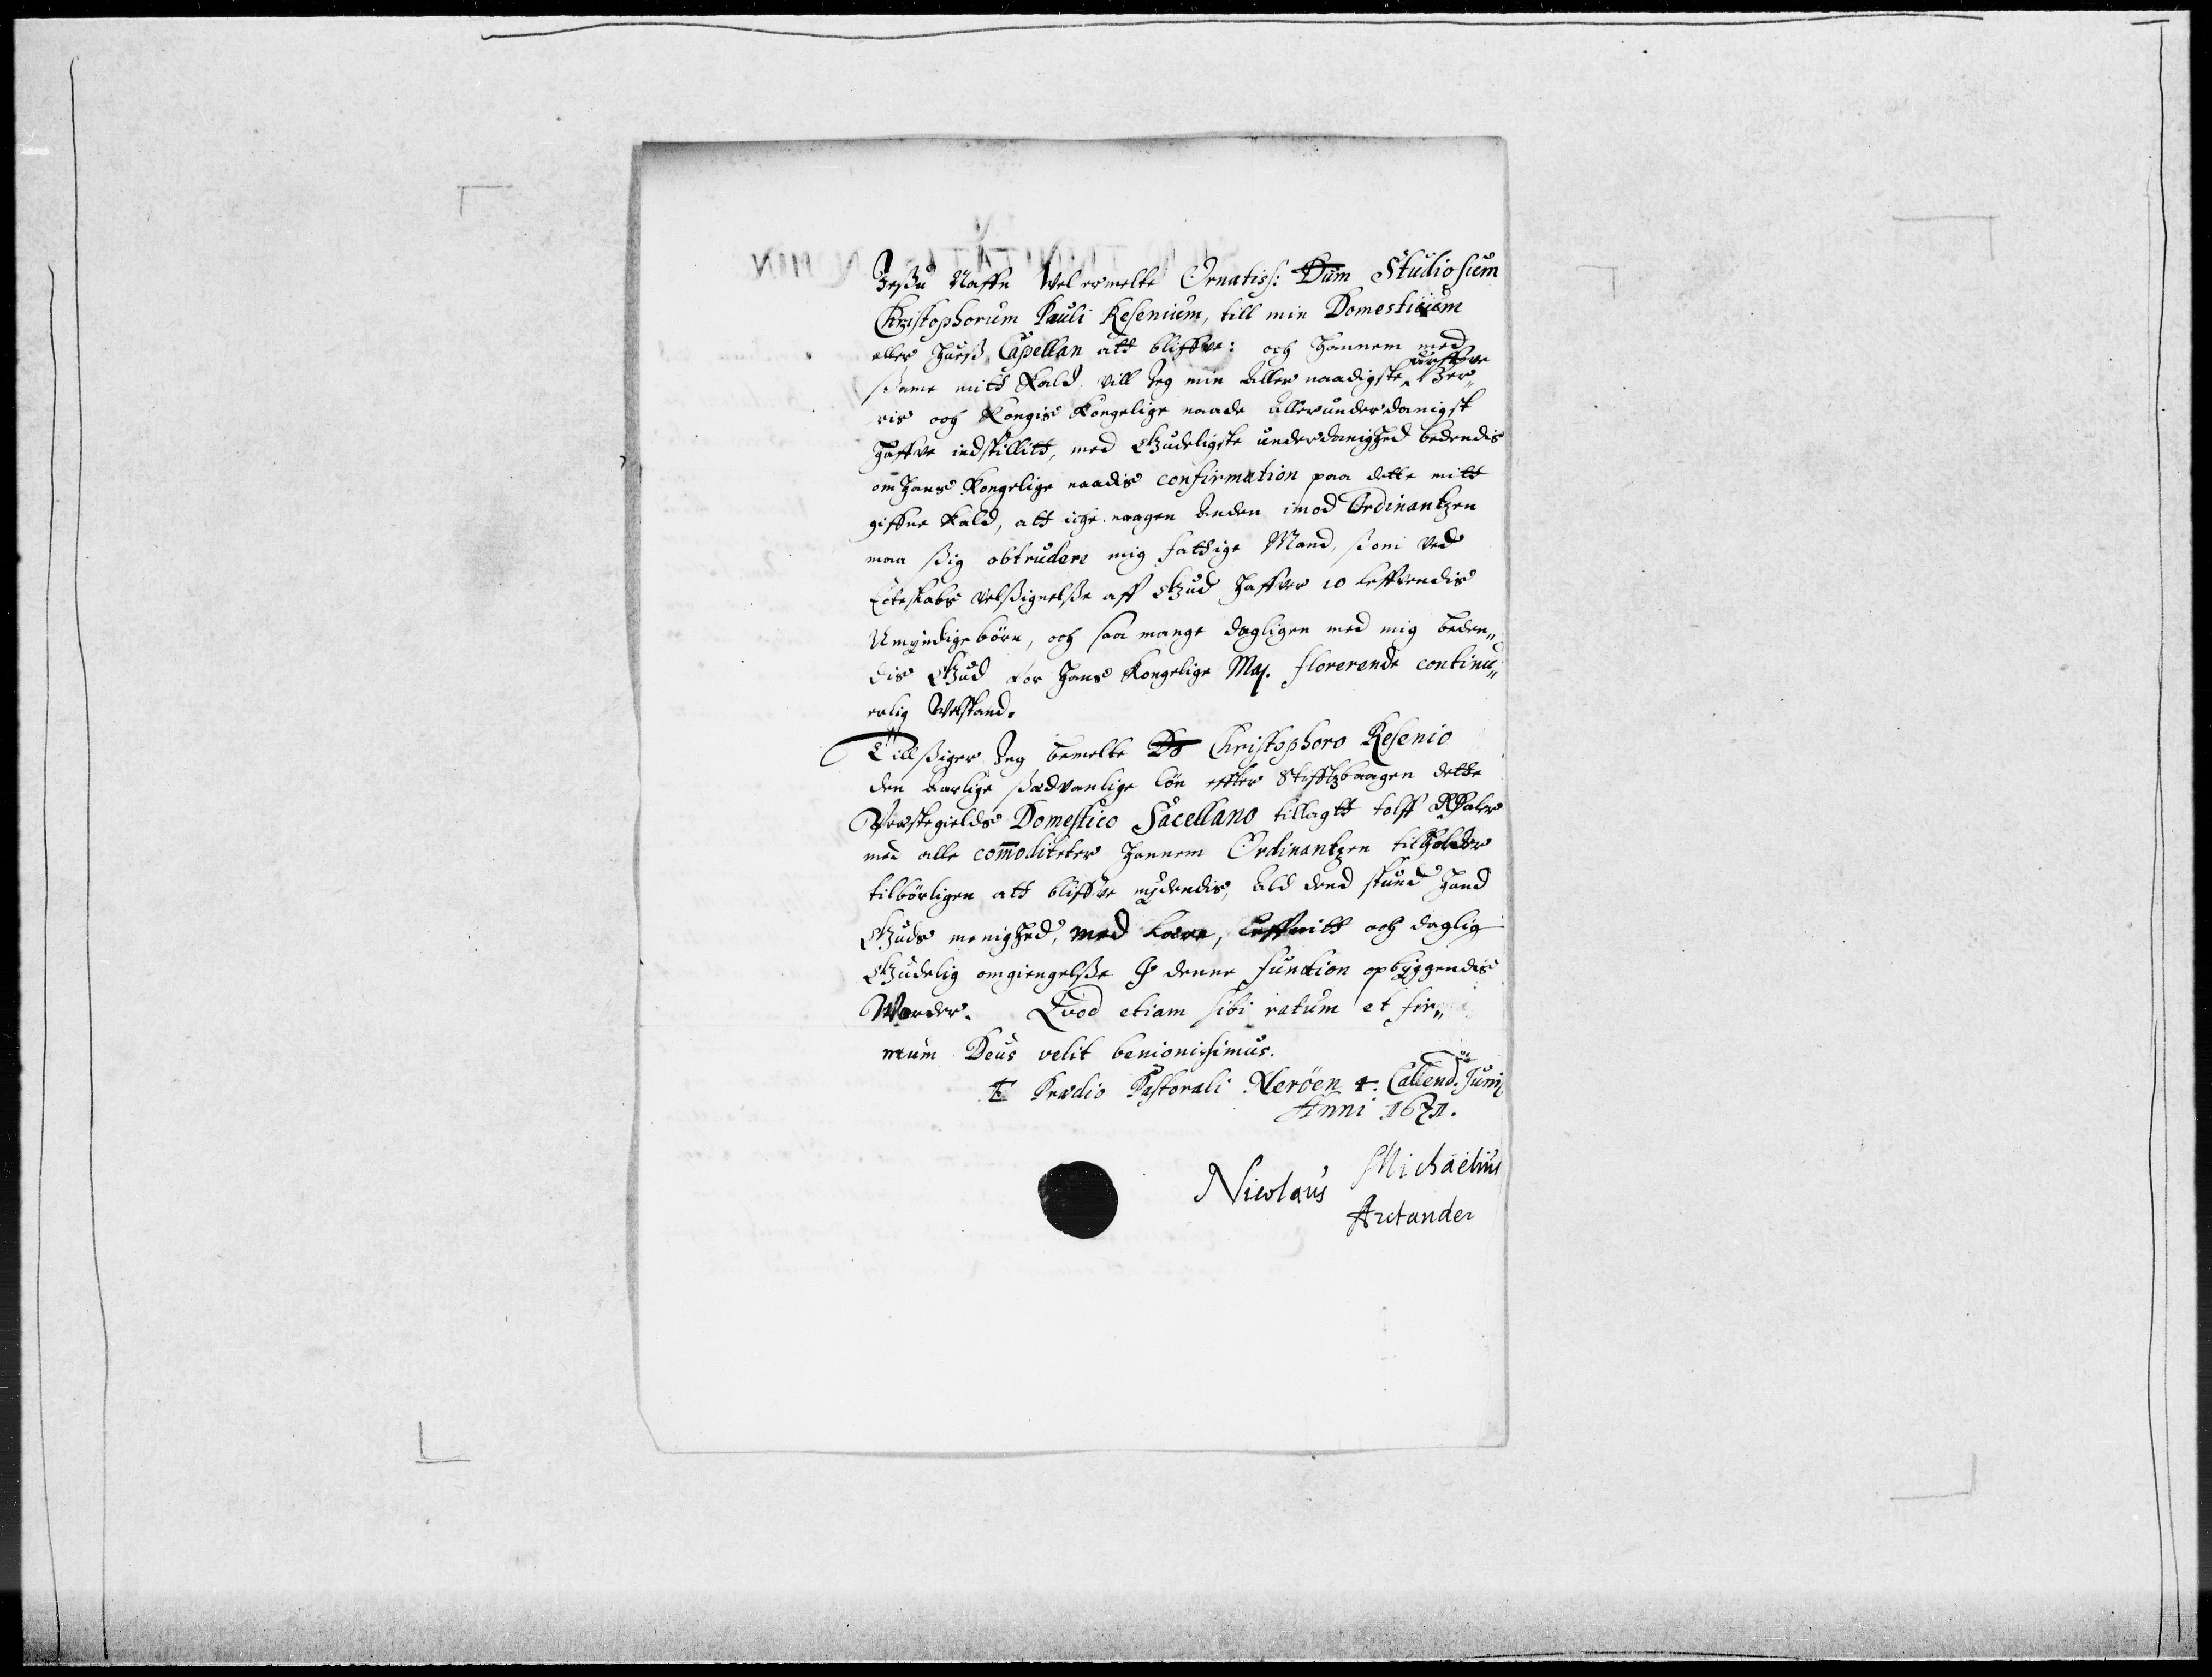 Jeßu Naffn Velermelte Ornatiss: Dum Studiosum
Christophorum Pauli Resenium, till min Domesticum
eller Huuß Capellan att bliffve: och hannem med
ßame mitt Kald vill Jeg min aller naadigste arffve Her„
ris och Kongis Kongelige naade allerunderdanigst
haffve indstillitt, med Gudeligste underdanighed bedendis
om hans Kongelige naadis confirmation paa dette mitt
giffne Kald, att iche naagen Anden imod Ordinantzen
maa ßig obtrudere mig fattige Mand, som ved
Ecteskabs velßignelße aff Gud haffver 10 leffvendis
Umyndige börn, och saa mange dagligen med mig beden„
dis Gud for Hans Kongelige Maj. florerende continu„
erlig Velstand.
Tillßiger Jeg bemelte Do Christophoro Resenio
den aarlige ßædvanlige lön effter Stifftzbaagen dette
Præstegields Domestico Sacellano tillagtt tolff RDaler
med alle com̄oditeter hannem Ordinantzen tilholder
tilbörligen att bliffve nydendis, ald dend stund hand
Guds menighed, med Lære, Leffnitt och daglig
Gudelig omgiengelße J denne function opbyggendis
Vorder. Qvod etiam sibi ratum et fir„
mum Deus velit benignissimus.
E Prædio Pastorali Neröen 4. Calend. Junij
Anni 1671.
Nicolaus Michaëlius
Arctander